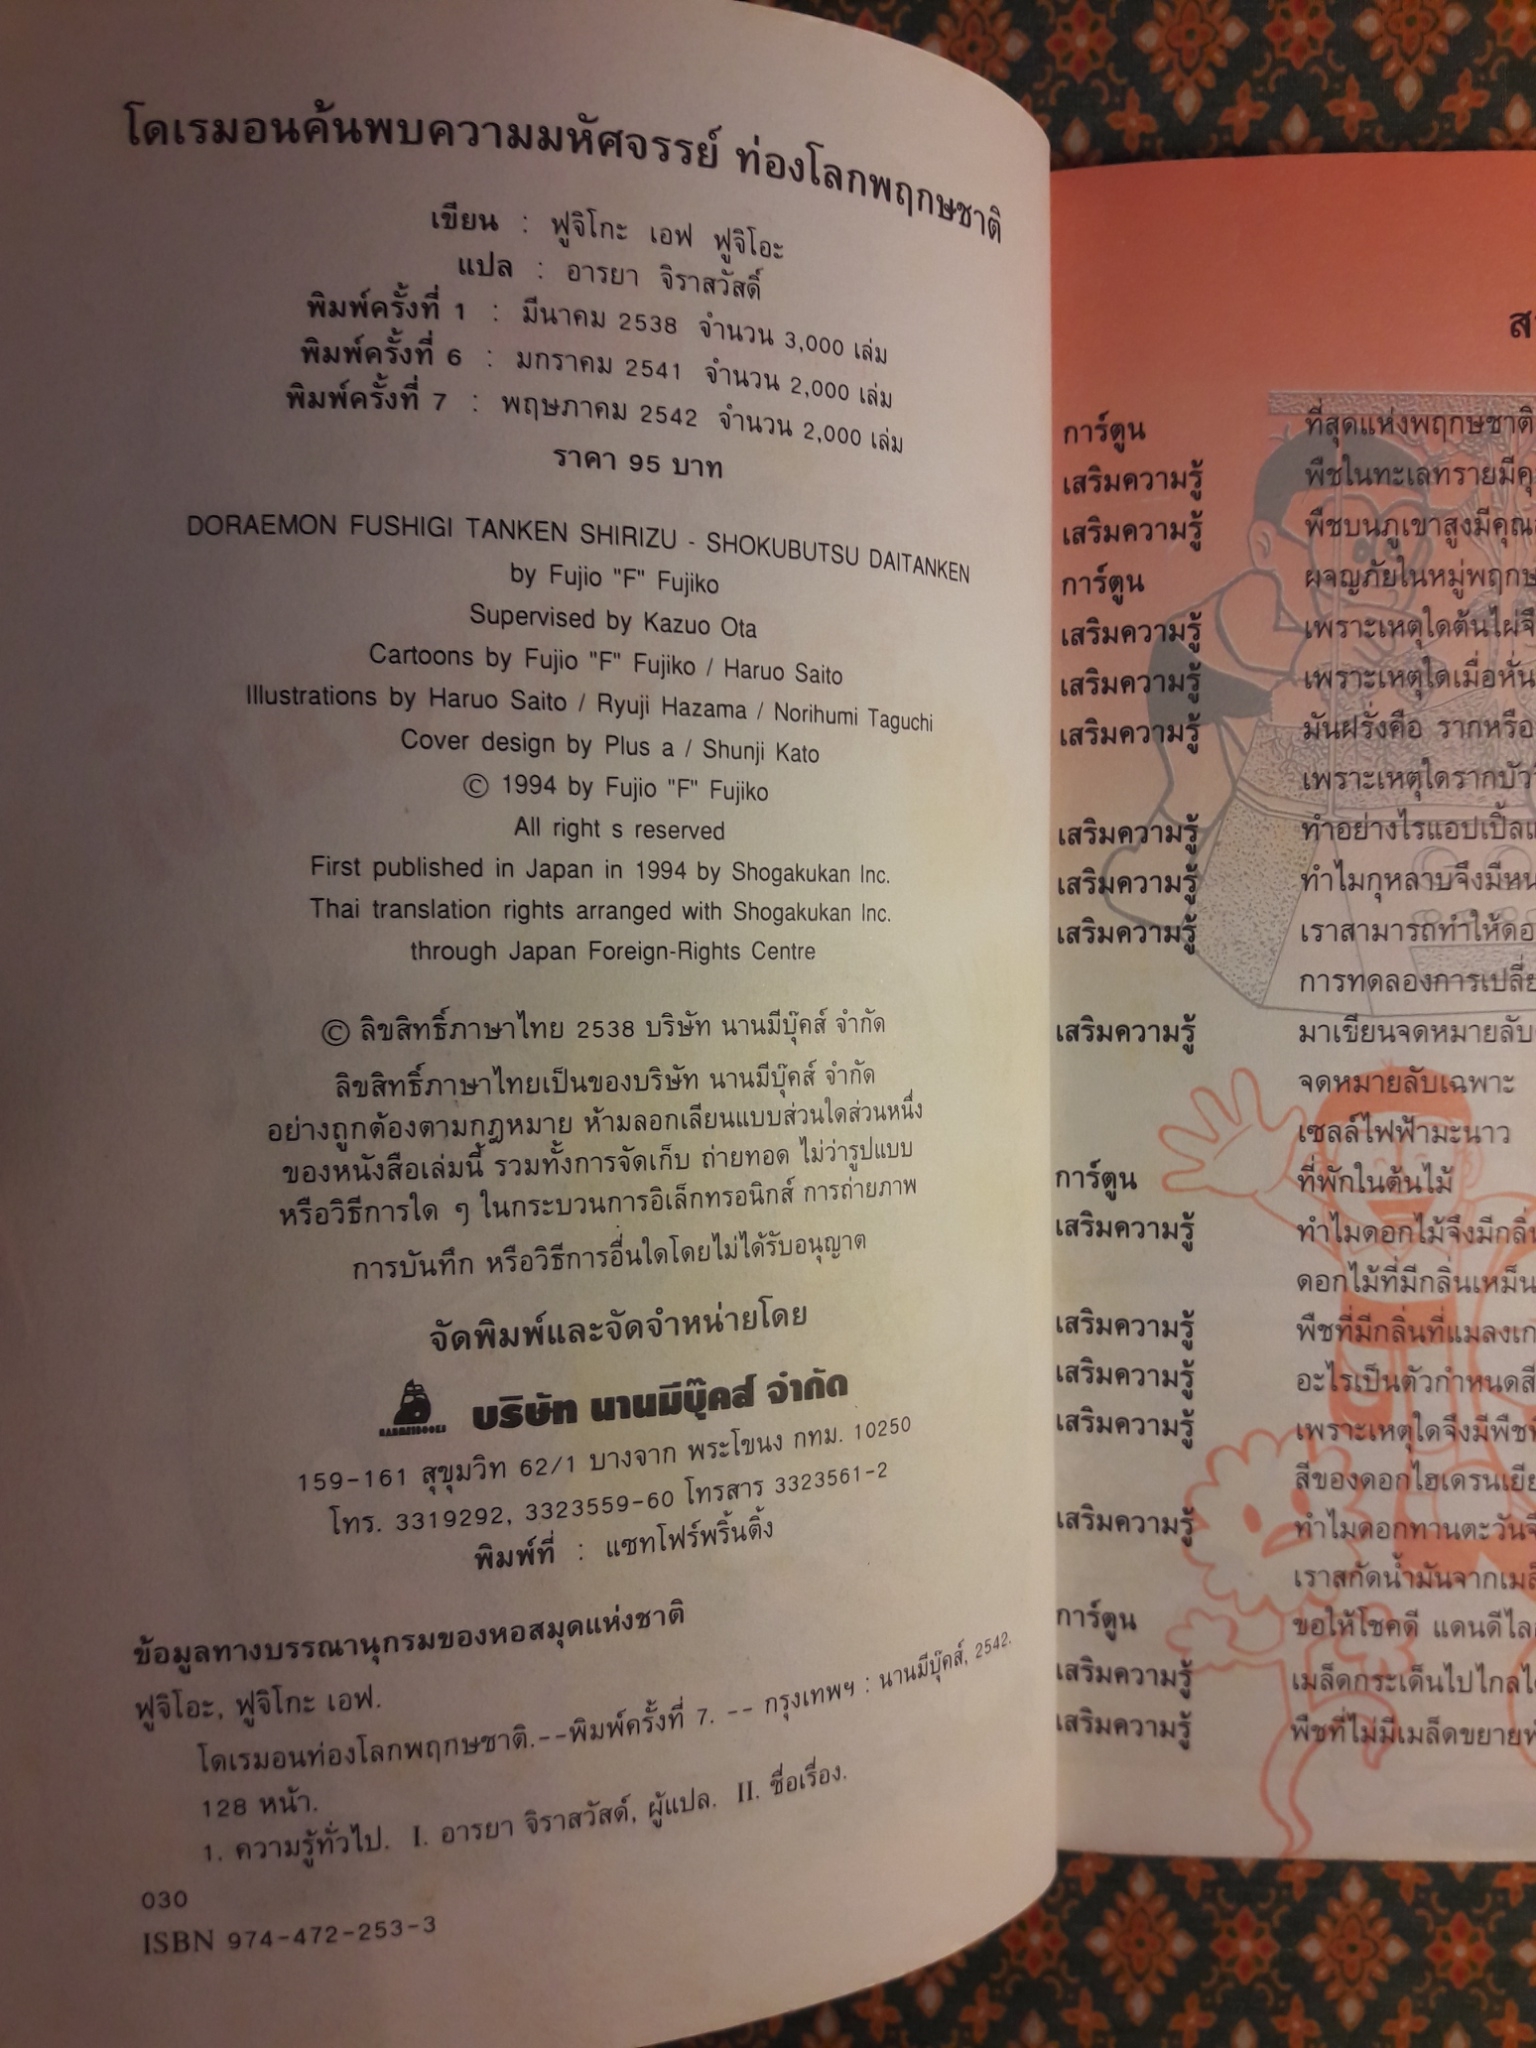 โดเรมอนค้นพบความมหัศจรรย์ ท่องโลกพฤกษชาติ
เขียน : ฟูจิโกะ เอฟ ฟูจิโอะ
แปล : อารยา จิราสวัสดิ์
พิมพ์ครั้งที่ 1 : มีนาคม 2538 จำนวน 3,000 เล่ม
พิมพ์ครั้งที่ 6 : มกราคม 2541 จำนวน 2,000 เล่ม
พิมพ์ครั้งที่ 7 : พฤษภาคม 2542 จำนวน 2,000 เล่ม
ราคา 95 บาท
DORAEMON FUSHIGI TANKEN SHIRIZU - SHOKUBUTSU DAITANKEN
by Fujio "F" Fujiko
Supervised by Kazuo Ota
Cartoons by Fujio "F" Fujiko / Haruo Saito
Illustrations by Haruo Saito / Ryuji Hazama / Norihumi Taguchi
Cover design by Plus a / Shunji Kato
© 1994 by Fujio "F" Fujiko
All right s reserved
First published in Japan in 1994 by Shogakukan Inc.
Thai translation rights arranged with Shogakukan Inc.
through Japan Foreign-Rights Centre
© ลิขสิทธิ์ภาษาไทย 2538 บริษัท นานมีบุ๊คส์ จำกัด
ลิขสิทธิ์ภาษาไทยเป็นของบริษัท นานมีบุ๊คส์ จำกัด
อย่างถูกต้องตามกฎหมาย ห้ามลอกเลียนแบบส่วนใดส่วนหนึ่ง
ของหนังสือเล่มนี้ รวมทั้งการจัดเก็บ ถ่ายทอด ไม่ว่ารูปแบบ
หรือวิธีการใด ๆ ในกระบวนการอิเล็กทรอนิกส์ การถ่ายภาพ
การบันทึก หรือวิธีการอื่นใดโดยไม่ได้รับอนุญาต
จัดพิมพ์และจัดจำหน่ายโดย
NANMEEBOOKS บริษัท นานมีบุ๊คส์ จำกัด
159-161 สุขุมวิท 62/1 บางจาก พระโขนง กทม. 10250
โทร. 3319292, 3323559-60 โทรสาร 3323561-2
พิมพ์ที่ : แซทโฟร์พริ้นติ้ง
ข้อมูลทางบรรณานุกรมของหอสมุดแห่งชาติ
ฟูจิโอะ, ฟูจิโกะ เอฟ.
โดเรมอนท่องโลกพฤกษชาติ.--พิมพ์ครั้งที่ 7. -- กรุงเทพฯ : นานมีบุ๊คส์, 2542.
128 หน้า.
1. ความรู้ทั่วไป. I. อารยา จิราสวัสดิ์, ผู้แปล. II. ชื่อเรื่อง.
030
ISBN 974-472-253-3
การ์ตูน ที่สุดแห่งพฤกษชาติ
เสริมความรู้ พืชในทะเลทรายมีคุ
เสริมความรู้ พืชบนภูเขาสูงมีคุณ
การ์ตูน ผจญภัยในหมู่พฤกษ
เสริมความรู้ เพราะเหตุใดต้นไผ่จึ
เสริมความรู้ เพราะเหตุใดเมื่อหั่น
เสริมความรู้ มันฝรั่งคือ รากหรือ
เพราะเหตุใดรากบัว
เสริมความรู้ ทำอย่างไรแอปเปิ้ล
เสริมความรู้ ทำไมกุหลาบจึงมีหน
เสริมความรู้ เราสามารถทำให้ดอ
การทดลองการเปลี่ย
เสริมความรู้ มาเขียนจดหมายลับ
จดหมายลับเฉพาะ
เซลล์ไฟฟ้ามะนาว
การ์ตูน ที่พักในต้นไม้
เสริมความรู้ ทำไมดอกไม้จึงมีกลิ่น
ดอกไม้ที่มีกลิ่นเหม็น
เสริมความรู้ พืชที่มีกลิ่นที่แมลงเก
เสริมความรู้ อะไรเป็นตัวกำหนดสี
เสริมความรู้ เพราะเหตุใดจึงมีพืชที
สีของดอกไฮเดรนเยีย
เสริมความรู้ ทำไมดอกทานตะวันจึ
เราสกัดน้ำมันจากเมล็
การ์ตูน ขอให้โชคดี แดนดีไล
เสริมความรู้ เมล็ดกระเด็นไปไกลได
เสริมความรู้ พืชที่ไม่มีเมล็ดขยายพั